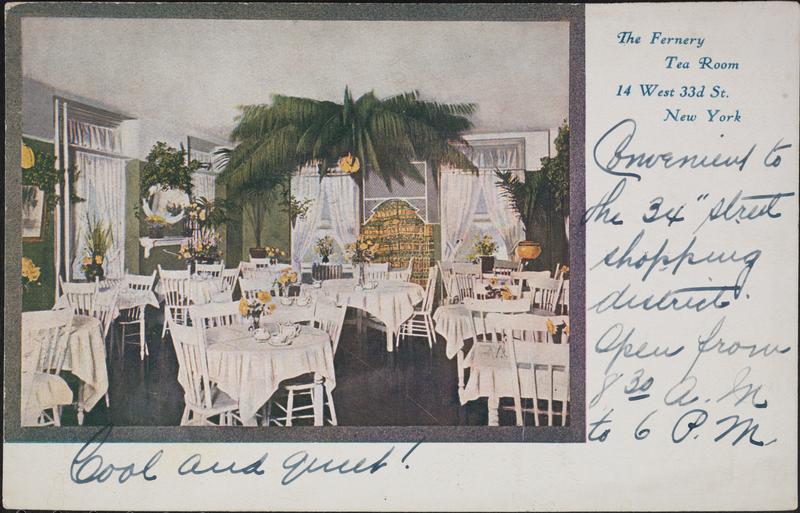 The Fernery
Tea Room
14 West 33d St.
New York
Convenient to
the 34" street
shopping
district.
Open from
8 30 A. M
to 6 P. M.
Cool and quiet!